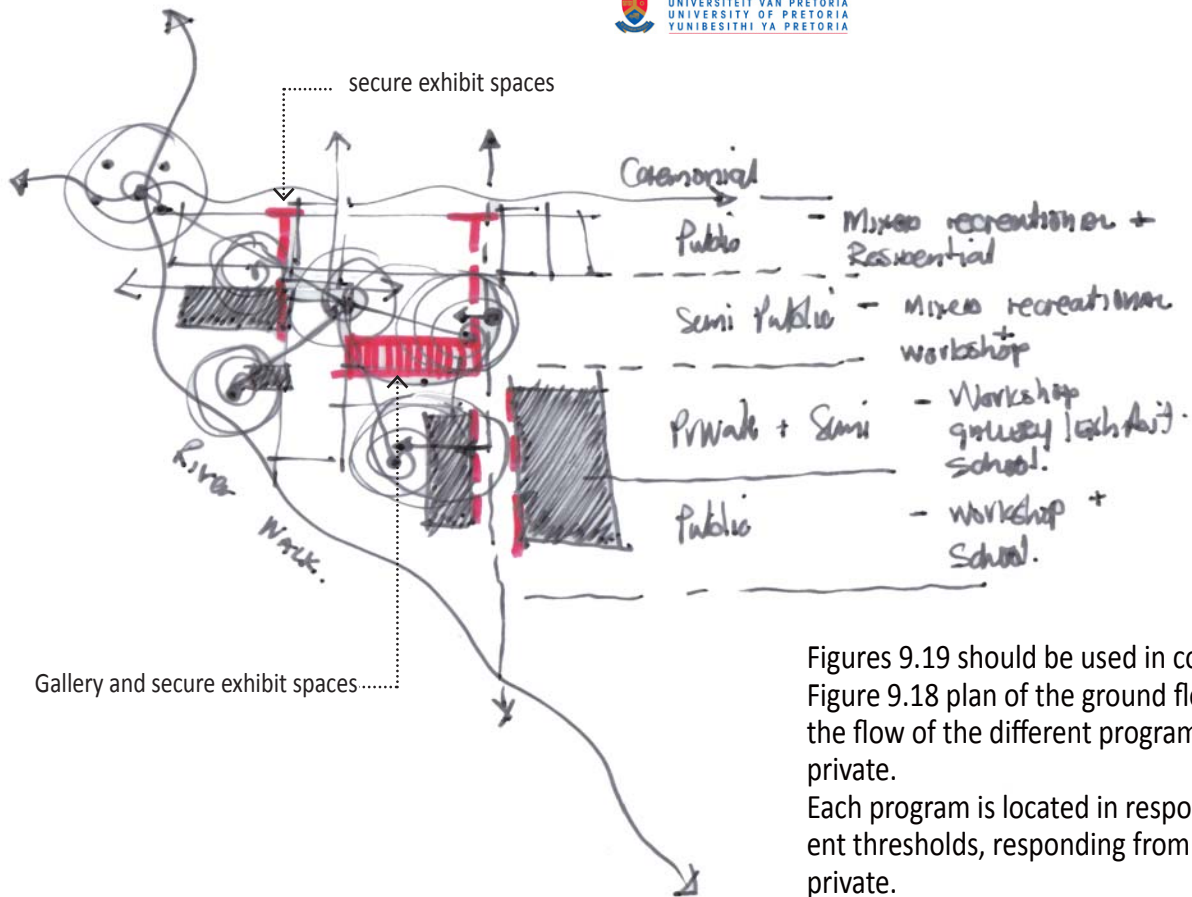 UNIVERSITEIT VAN PRETORIA
UNIVERSITY OF PRETORIA
YUNIBESITHI YA PRETORIA
secure exhibit spaces
Ceremonial
Public - Mixed recreational +
Residential
Semi Public - Mixed recreational
+
workshop
Private + Semi - Workshop
gallery / exhibit.
School.
Public - workshop +
School.
River
Walk.
Gallery and secure exhibit spaces
Figures 9.19 should be used in co
Figure 9.18 plan of the ground flo
the flow of the different program
private.
Each program is located in respo
ent thresholds, responding from
private.